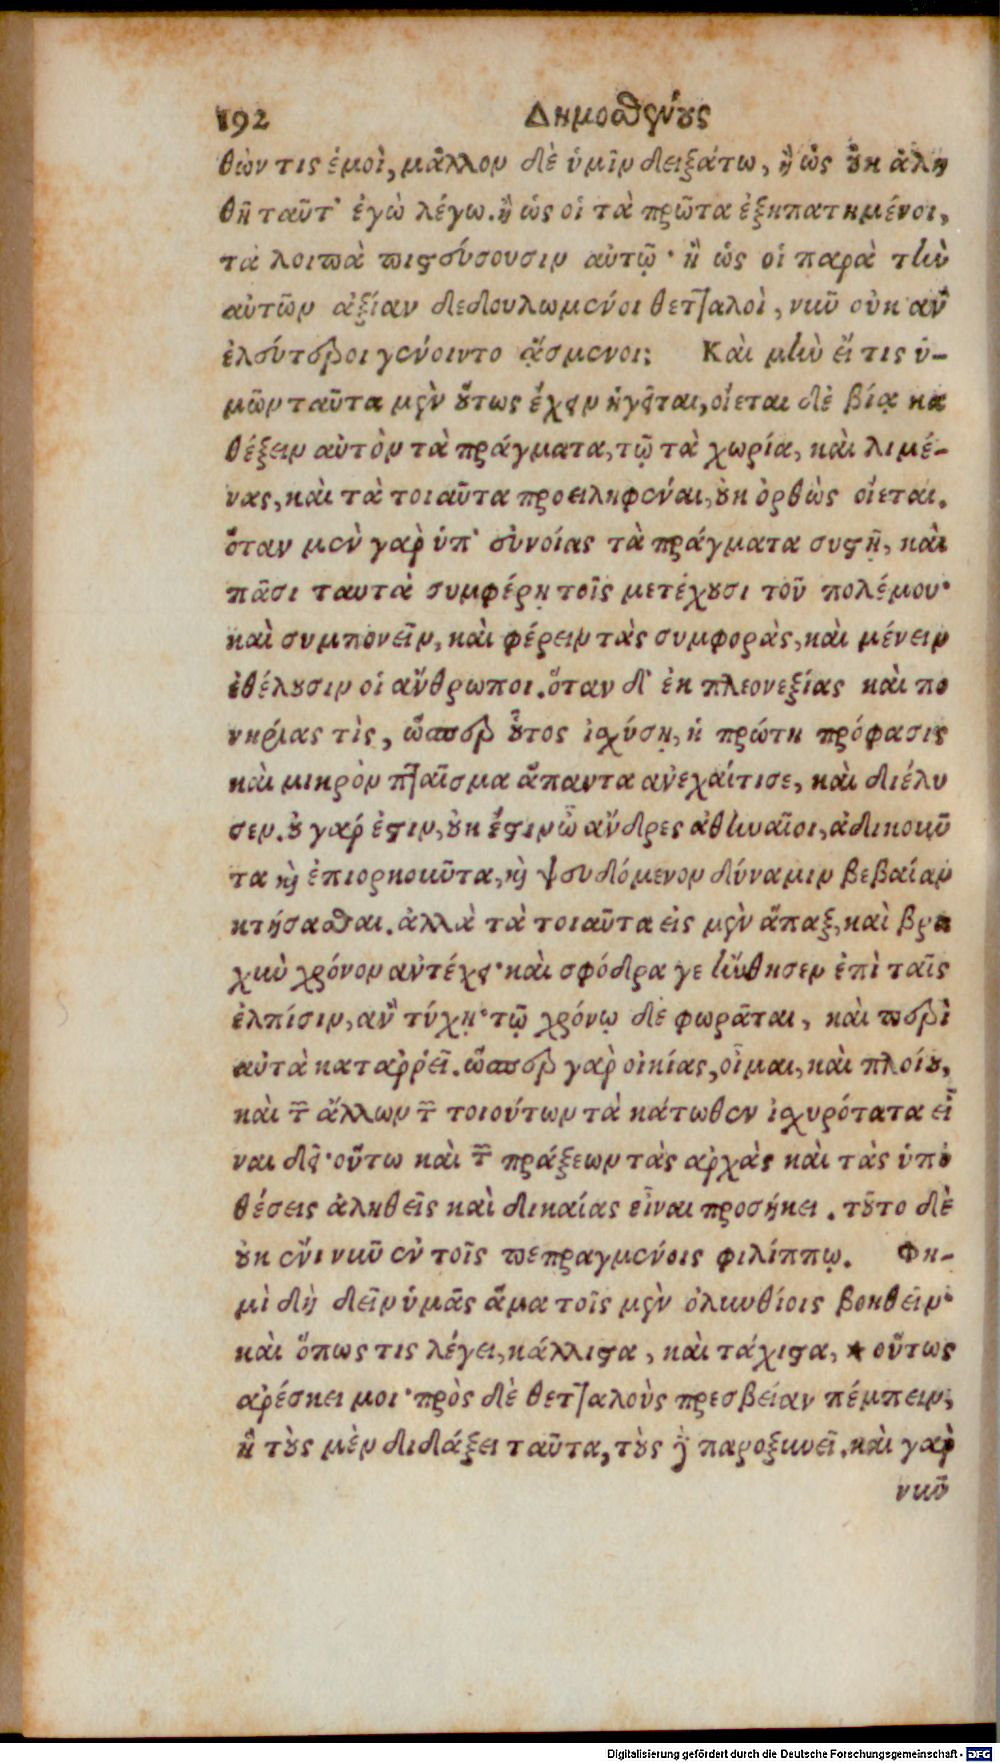 192 Δημοσθένους
θών τις ἐμοὶ, μᾶλλον δὲ ὑμῖν δειξάτω, ἢ ὡς οὐκ ἀλη
θῆ ταῦτ' ἐγὼ λέγω. ἢ ὡς οἱ τὰ πρῶτα ἐξηπατημένοι,
τὰ λοιπὰ πιστεύσουσιν αὐτῷ· ἢ ὡς οἱ παρὰ τὴν
αὐτῶν ἀξίαν δεδουλωμένοι θετταλοὶ, νῦν οὐκ ἂν
ἐλεύτεροι γένοιντο ἄσμενοι; Καὶ μὴν εἴ τις ὑ-
μῶν ταῦτα μὲν οὕτως ἔχειν ἡγεῖται, οἴεται δὲ βίᾳ κα
θέξειν αὐτὸν τὰ πράγματα, τῷ τὰ χωρία, καὶ λιμέ-
νας, καὶ τὰ τοιαῦτα προειληφέναι, οὐκ ὀρθὼς οἴεται.
ὅταν μὲν γαρ ὑπ' εὐνοίας τὰ πράγματα συστῇ, καὶ
πᾶσι ταυτὰ συμφέρῃ τοῖς μετέχουσι τοῦ πολέμου·
καὶ συμπονεῖν, καὶ φέρειν τὰς συμφορὰς, καὶ μένειν
ἐθέλουσιν οἱ ἄνθρωποι. ὅταν δ' ἐκ πλεονεξίας καὶ πο
νηρίας τὶς, ὥσπερ οὗτος ἰσχύσῃ, ἡ πρώτη πρόφασις
καὶ μικρὸν πταῖσμα ἅπαντα ἀνεχαίτισε, καὶ διέλυ
σεν. οὐ γαρ ἐστιν, οὐκ ἔστιν ὦ ἄνδρες ἀθηναῖοι, ἀδικοῦ
τα καὶ ἐπιορκοῦτα, καὶ ψευδόμενον δύναμιν βεβαίαν
κτήσασθαι. ἀλλὰ τὰ τοιαῦτα εἰς μὲν ἅπαξ, καὶ βρα
χὺ χρόνον ἀντέχει· καὶ σφόδρα γε ἤνθησεν ἐπὶ ταῖς
ἐλπίσιν, ἂν τύχῃ· τῷ χρόνῳ δὲ φωρᾶται, καὶ περὶ
αὐτὰ καταῤῥεῖ. ὥσπερ γαρ οἰκίας, οἶμαι, καὶ πλοίου,
καὶ τῶν ἄλλων τῶν τοιούτων τὰ κάτωθεν ἰσχυρότατα εἶ
ναι δεῖ· οὕτω καὶ τῶν πράξεων τὰς ἀρχὰς καὶ τὰς ὑπο
θέσεις ἀληθεῖς καὶ δικαίας εἶναι προσήκει. τοῦτο δὲ
οὐκ ἔνι νῦν ἐν τοῖς πεπραγμένοις φιλίππῳ. Φη-
μὶ δὴ δεῖν ὑμᾶς ἅμα τοῖς μὲν ὀλυνθίοις βοηθεῖν·
καὶ ὅπως τις λέγει, κάλλιστα, καὶ τάχιστα, * οὕτως
ἀρέσκει μοι· πρὸς δὲ θετταλοὺς πρεσβείαν πέμπειν,
ἣ τοὺς μὲν διδάξει ταῦτα, τοὺς δὲ παροξυνεῖ. καὶ γαρ
νῦν
Digitalisierung gefördert durch die Deutsche Forschungsgemeinschaft - DFG